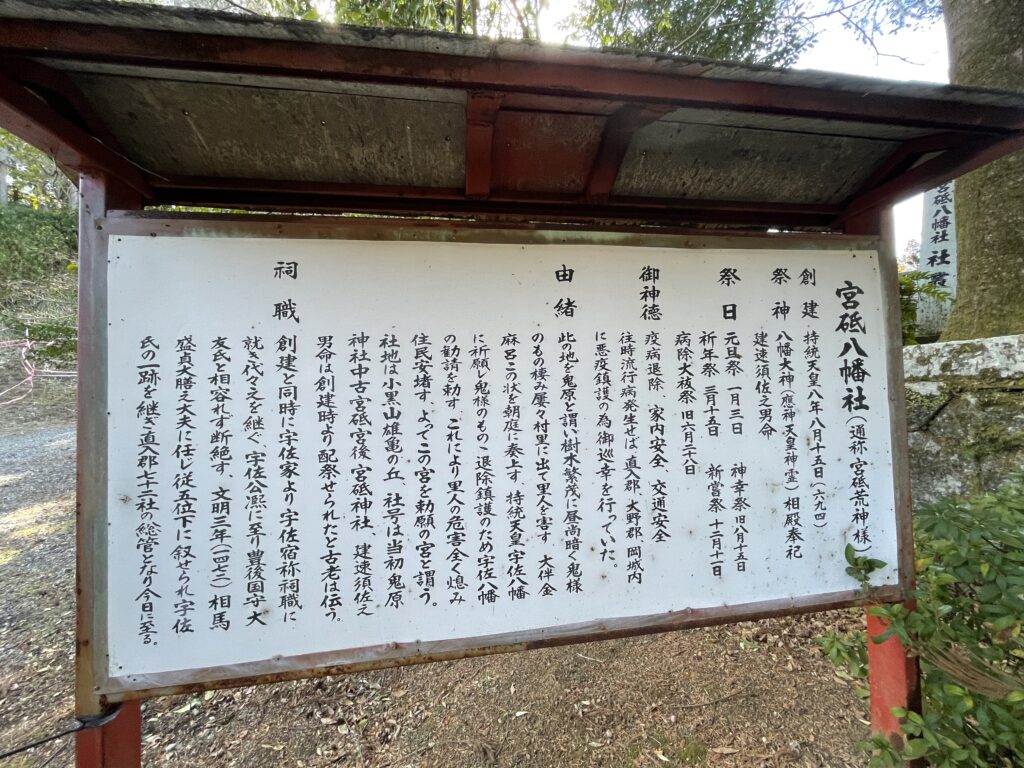 宮砥八幡社（通称 宮砥荒神様）
創建 持統天皇八年八月十五日（六九四）
祭神 八幡大神（應神天皇神霊）相殿奉祀
建速須佐之男命
祭日 元旦祭 一月三日 神幸祭 旧八月十五日
祈年祭 三月十五日 新嘗祭 十二月十一日
病除大祓祭 旧六月二十八日
御神徳 疫病退除、家内安全、交通安全
往時流行病発生せば、直入郡、大野郡、岡城内
に悪疫鎮護の為御巡幸を行っていた。
由緒 此の地を鬼原と謂い樹木繁茂に昼尚暗く鬼様
のもの棲み屡々村里に出て里人を害す 大伴金
麻呂この状を朝庭に奏上す 持統天皇 宇佐八幡
に祈願し鬼様のもの、退除鎮護のため宇佐八幡
の勧請を勅す、これにより里人の危害全く熄み
住民安堵す よってこの宮を勅願の宮と謂う。
社地は小黒山雄亀の丘、社号は当初 鬼原
神社中古宮砥宮後 宮砥神社、建速須佐之
男命は創建時より配祭せられたと古老は伝う。
祠職 創建と同時に宇佐家より宇佐宿祢祠職に
就き代々之を継ぐ、宇佐公熙に至り豊後国守大
友氏と相容れず断絶す、文明三年（一四七二）相馬
盛貞大膳之大夫に任じ従五位下に叙せられ宇佐
氏の一跡を継ぎ直入郡七十二社の総管となり今日に至る。
宮砥八幡社 社